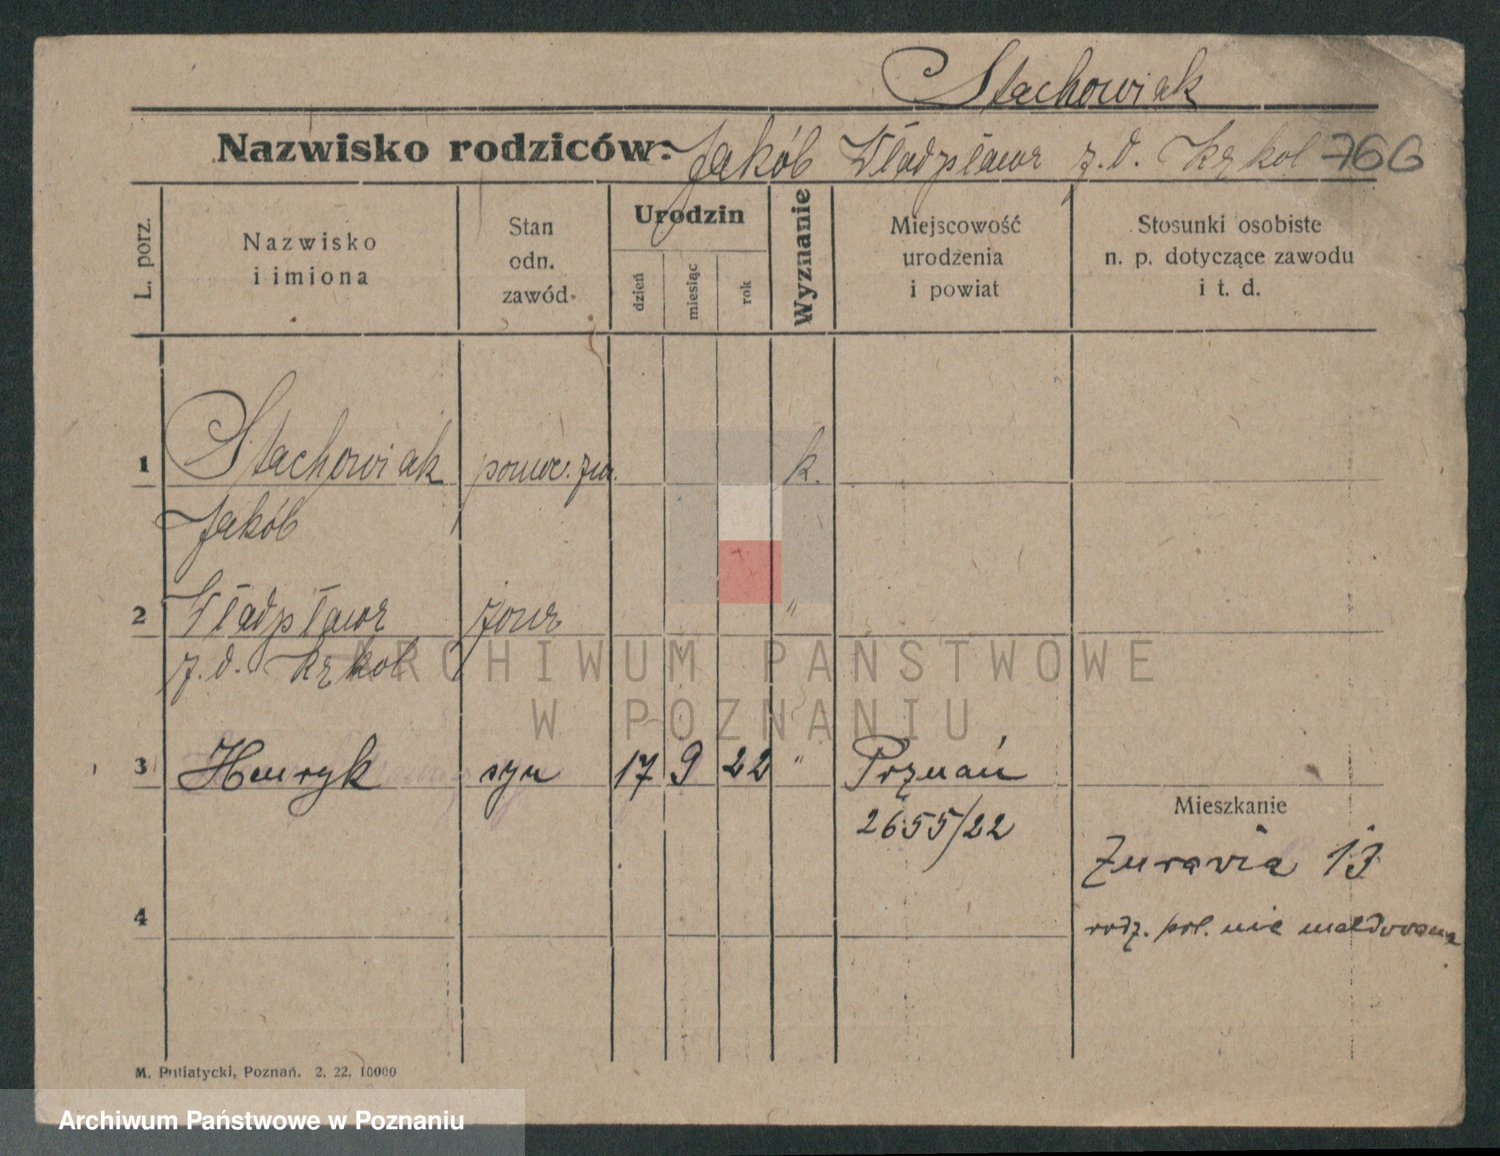 Stachowiak
Nazwisko rodziców: Jakób Władysława z.d. Kąkol 766
L. porz.
Nazwisko i imiona
Stan odn. zawód
Urodzin
dzień
miesiąc
rok
Wyznanie
Miejscowość urodzenia i powiat
Stosunki osobiste n. p. dotyczące zawodu i t. d.
1 Stachowiak pomoc. k.
Jakób
2 Władysława żona "
z.d. Kąkol
ARCHIWUM PAŃSTWOWE
W POZNANIU
3 Henryk syn 17 9 22 " Poznań
2655/22
Mieszkanie
Żurawia 13
4
rodz. pol. nie meldowana
M. Putiatycki, Poznań. 2. 22. 10000
Archiwum Państwowe w Poznaniu